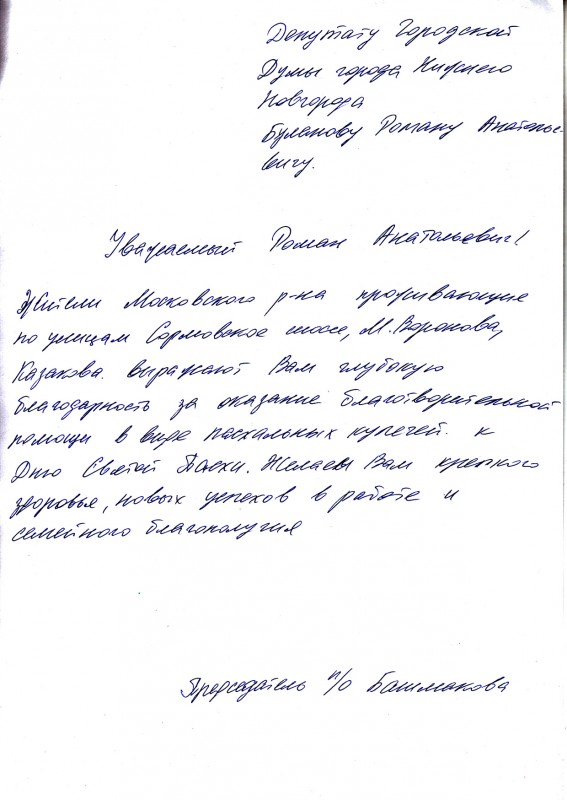 Депутату Городской
Думы города Нижнего
Новгорода
Буланову Роману Анатолье-
вичу.
Уважаемый Роман Анатольевич!
Жители Московского р-на проживающие
по улицам Сормовское шоссе, М.Воронова,
Казакова. выражают Вам глубокую
благодарность за оказание благотворительной
помощи в виде пасхальных куличей. к
Дню Святой Пасхи. Желаем Вам крепкого
здоровья, новых успехов в работе и
семейного благополучия
Председатель п/о Башмакова